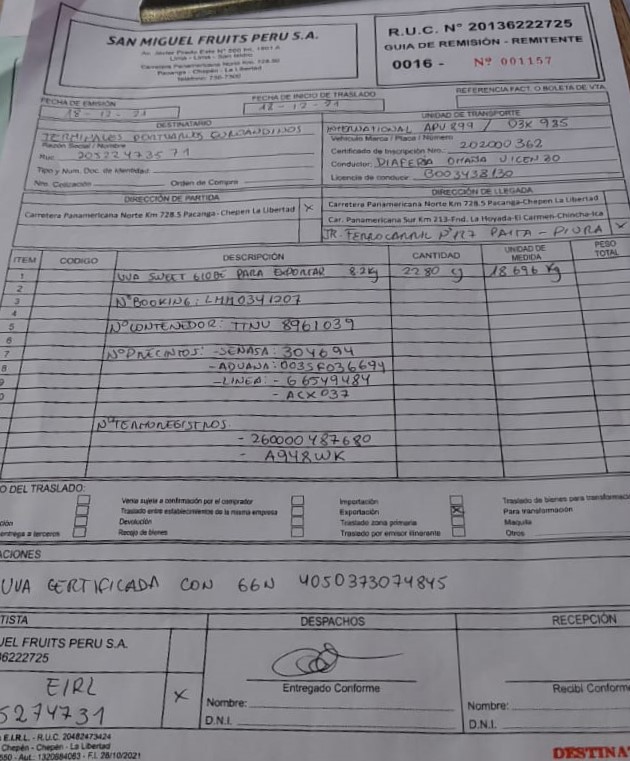 SAN MIGUEL FRUITS PERU S.A.
Av. Javier Prado Este N°
Lima - Lima - San Isidro
Carretera Panamericana Norte Km. 728.50
Pacanga - Chepén - La Libertad
R.U.C. N° 20136222725
GUIA DE REMISIÓN - REMITENTE
0016 - N° 001157
FECHA DE EMISIÓN
18-12-21
FECHA DE INICIO DE TRASLADO
18-12-21
REFERENCIA FACT. O BOLETA DE VTA.
DESTINATARIO
TERMINALES PORTUARIOS EUROANDINOS
Razón Social / Nombre
Ruc: 20522473571
Tipo y Num. Doc. de Identidad:
Nro. Cotización Orden de Compra
UNIDAD DE TRANSPORTE
INTERNATIONAL APU 899 / 03X 935
Vehículo Marca / Placa / Número
Certificado de Inscripción Nro.: 202000362
Conductor:
Licencia de conducir: B003438130
DIRECCIÓN DE PARTIDA
Carretera Panamericana Norte Km 728.5 Pacanga-Chepen La Libertad X
DIRECCIÓN DE LLEGADA
Carretera Panamericana Norte Km 728.5 Pacanga-Chepen La Libertad
Car. Panamericana Sur Km 213-Fnd. La Hoyada-El Carmen-Chincha-Ica
JR. FERROCARRIL N°127 PAITA - PIURA X
ITEM CODIGO DESCRIPCIÓN CANTIDAD UNIDAD DE MEDIDA PESO TOTAL
1 UVA SWEET GLOBE PARA EXPORTAR 8.2Kg 2280 cj 18696 Kg
2
3 N°BOOKING: LMM0341207
4
5 N°CONTENEDOR: TTNU 8961039
6
7 N°PRECINTOS: -SENASA: 304694
8 -ADUANA: 0035F036694
9 -LINEA: - 66549484
0 - ACX037
N°TERMOREGISTROS
- 260000487680
- A948WK
O DEL TRASLADO:
Venta sujeta a confirmación por el comprador
Importación
Traslado de bienes para transformació
Traslado entre establecimientos de la misma empresa
Exportación X
Para transformación
ción
Devolución
Traslado zona primaria
Maquila
entrega a terceros
Recojo de bienes
Traslado por emisor itinerante
Otros
ACIONES
UVA CERTIFICADA CON GGN 4050373074845
TISTA
DESPACHOS
RECEPCIÓN
UEL FRUITS PERU S.A.
36222725
EIRL X
5274731
Entregado Conforme
Nombre:
D.N.I.
Recibí Conforme
Nombre:
D.N.I.
E.I.R.L. - R.U.C. 20482473424
Chepén - Chepén - La Libertad
550 - Aut.: 1320884083 - F.I. 28/10/2021
DESTINA